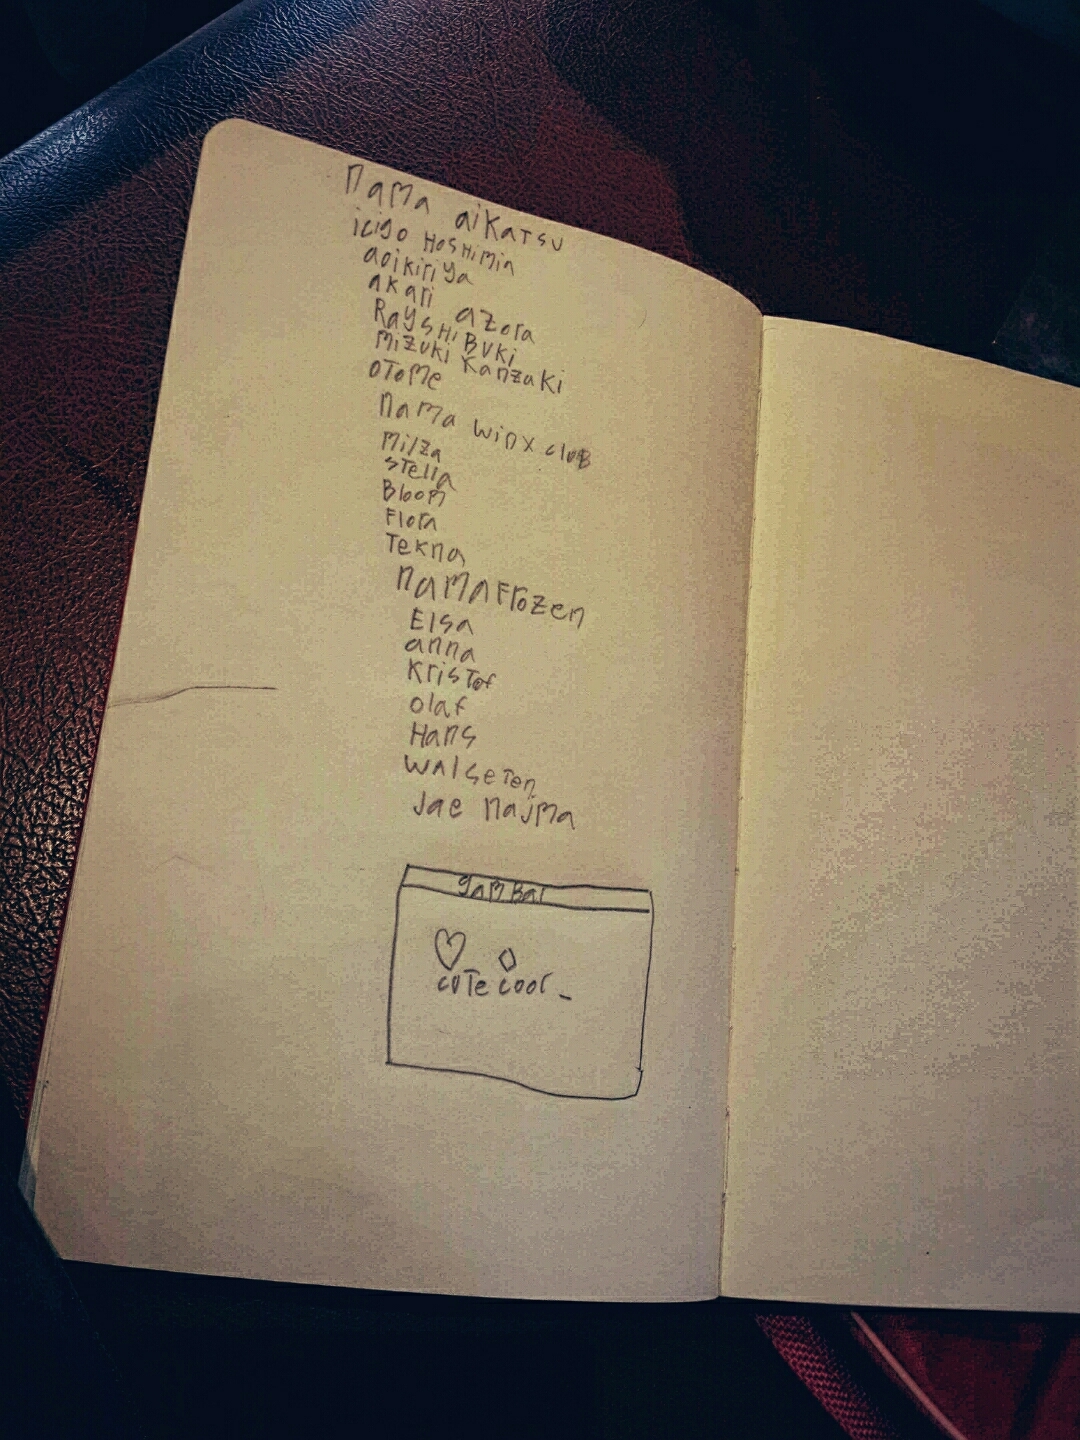 nama aikatsu
icigo Hoshimin
aoikiriya
akari azora
Ray shibuki
Mizuki kanzaki
otome
nama winx club
Milza
stella
Bloom
Flora
Tekna
nama Frozen
Elsa
anna
kristof
olaf
Hans
walseten
Jae najma
gambar
cute cool